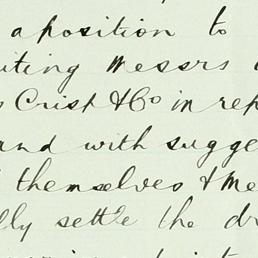 a position to
iting Messrs
Crisp & Co in rep
and with sugge
themselves & Me
lly settle the d